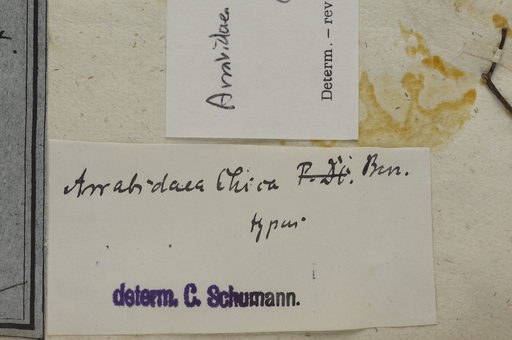 Arrabidaea
Determ. – rev
Arrabidaea Chica P. DC. Bur.
typus
determ. C. Schumann.